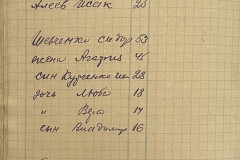 Алеев Исак 23
Шевченко Сидор 53
жена Агафия 45
сын Кудченко 23
дочь Люба 18
" Вера 17
сын Владимир 16